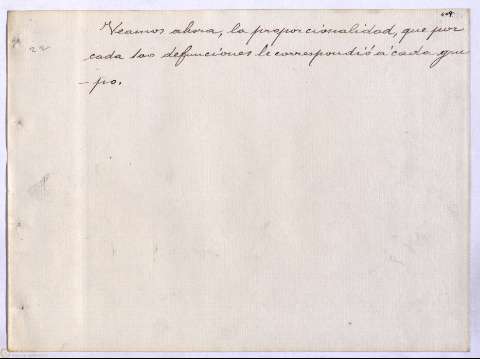 Veamos ahora, la proporcionalidad, que por
cada 100 defunciones le correspondió á cada gru
-po.